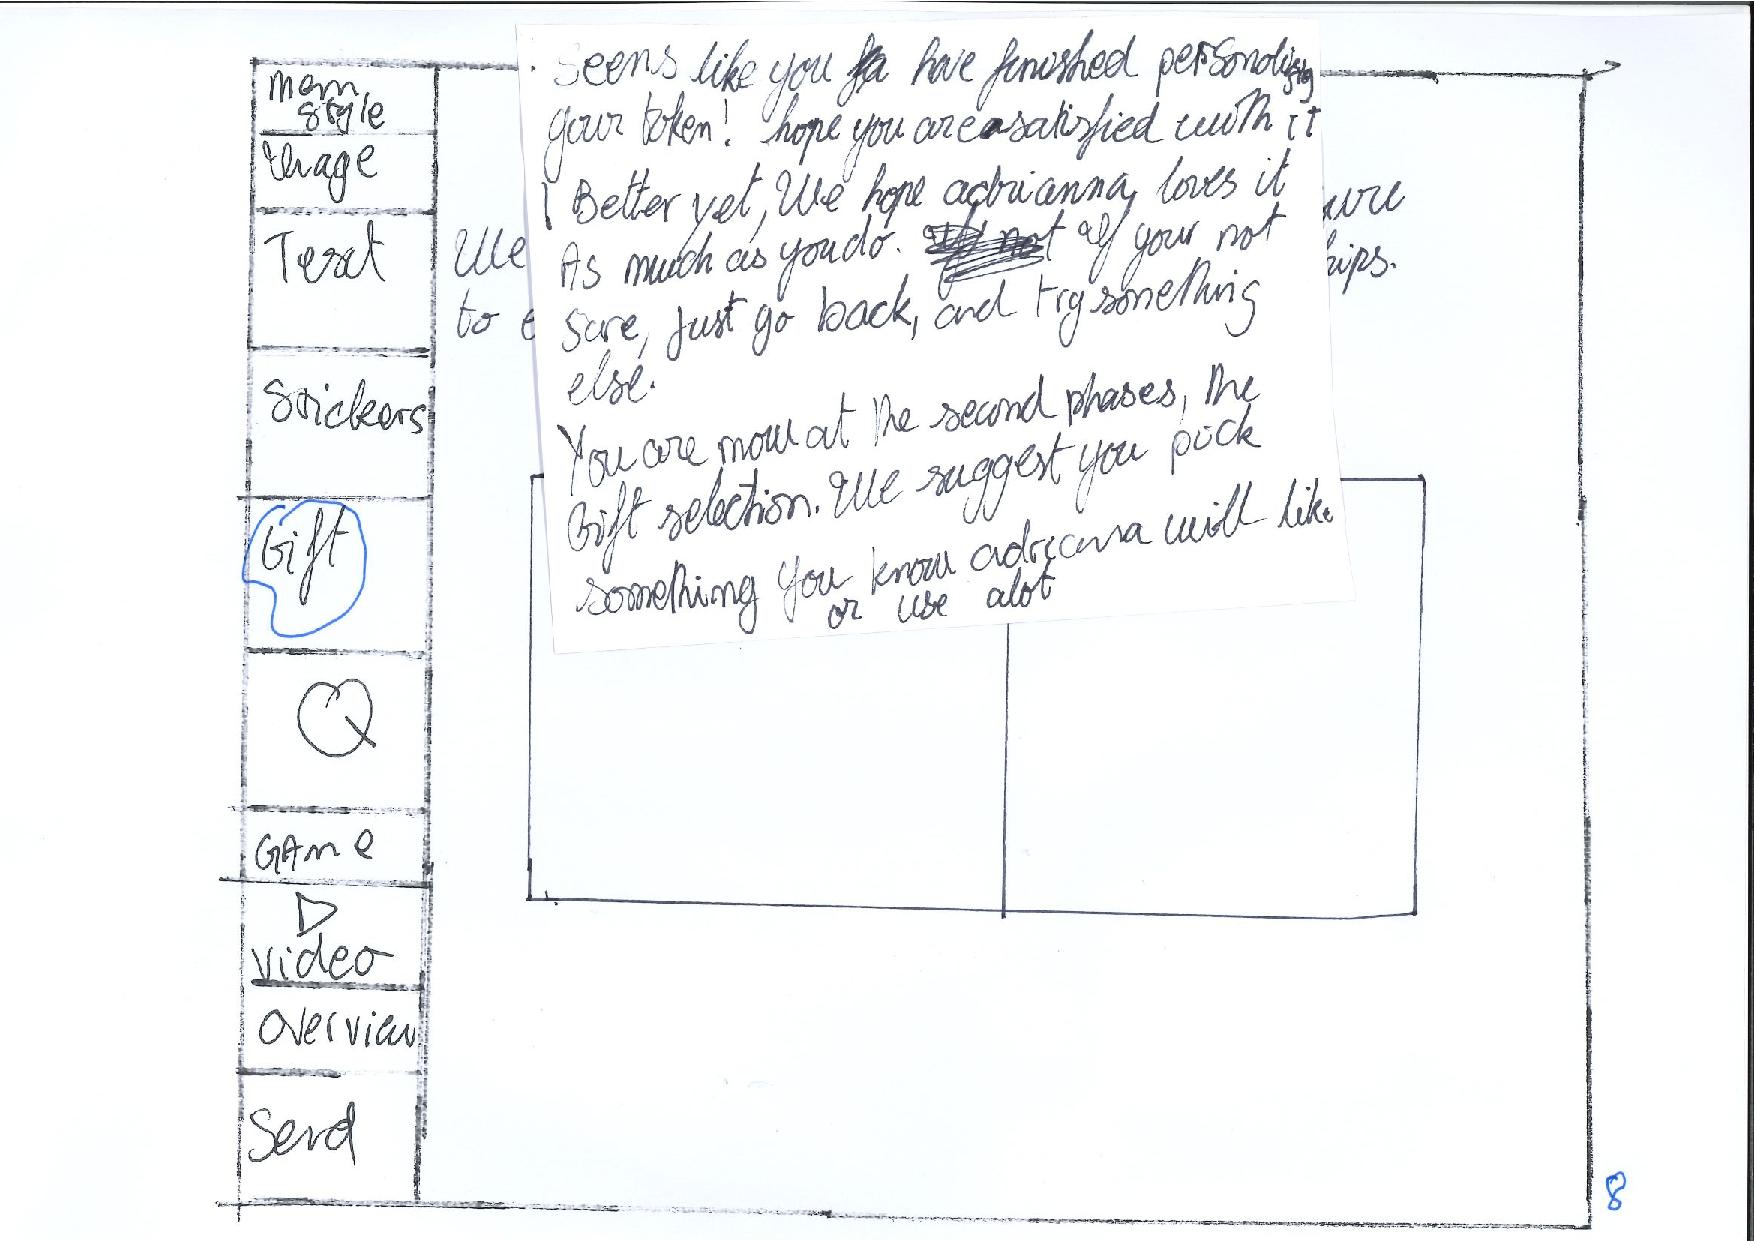 Mem
style
Image
Text
Stickers
Gift
GAme
video
Overview
Send
Seems like you have finished personalising
your token! hope you are satisfied with it
! Better yet, We hope adrianna loves it
As much as you do. If your not
sure, Just go back, and try something
else.
You are now at the second phases, the
Gift selection. We suggest you pick
something you know adrianna will like
or use alot
We
to e
ure
hips.
8